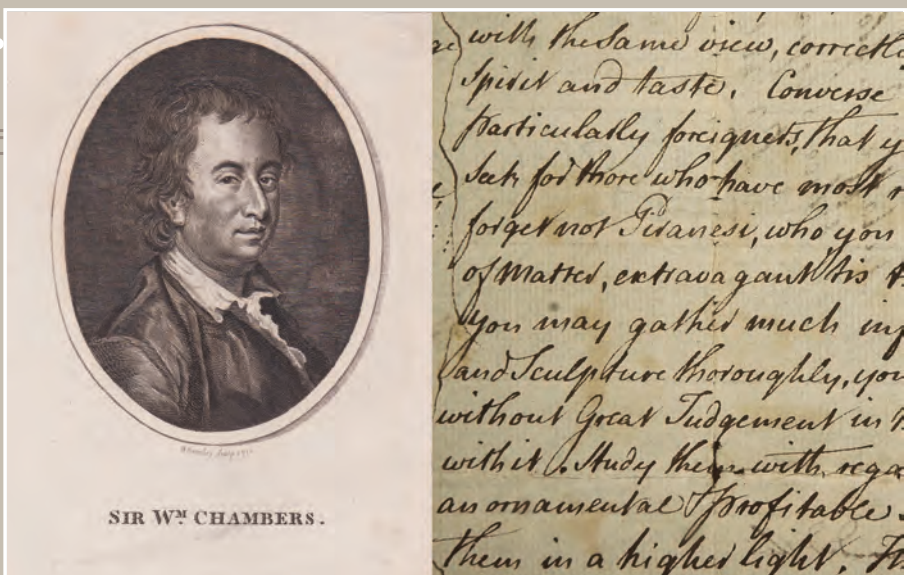 SIR Wᴹ CHAMBERS.
with the same view, correctly
spirit and taste. Converse
particularly foreigners, that y
Seek for those who have most r
forget not Piranesi, who you
of matter, extravagant tis t
you may gather much inf
and Sculpture thoroughly, you
without Great Judgement in
with it. Study them with rega
an ornamental & profitable
them in a higher light.